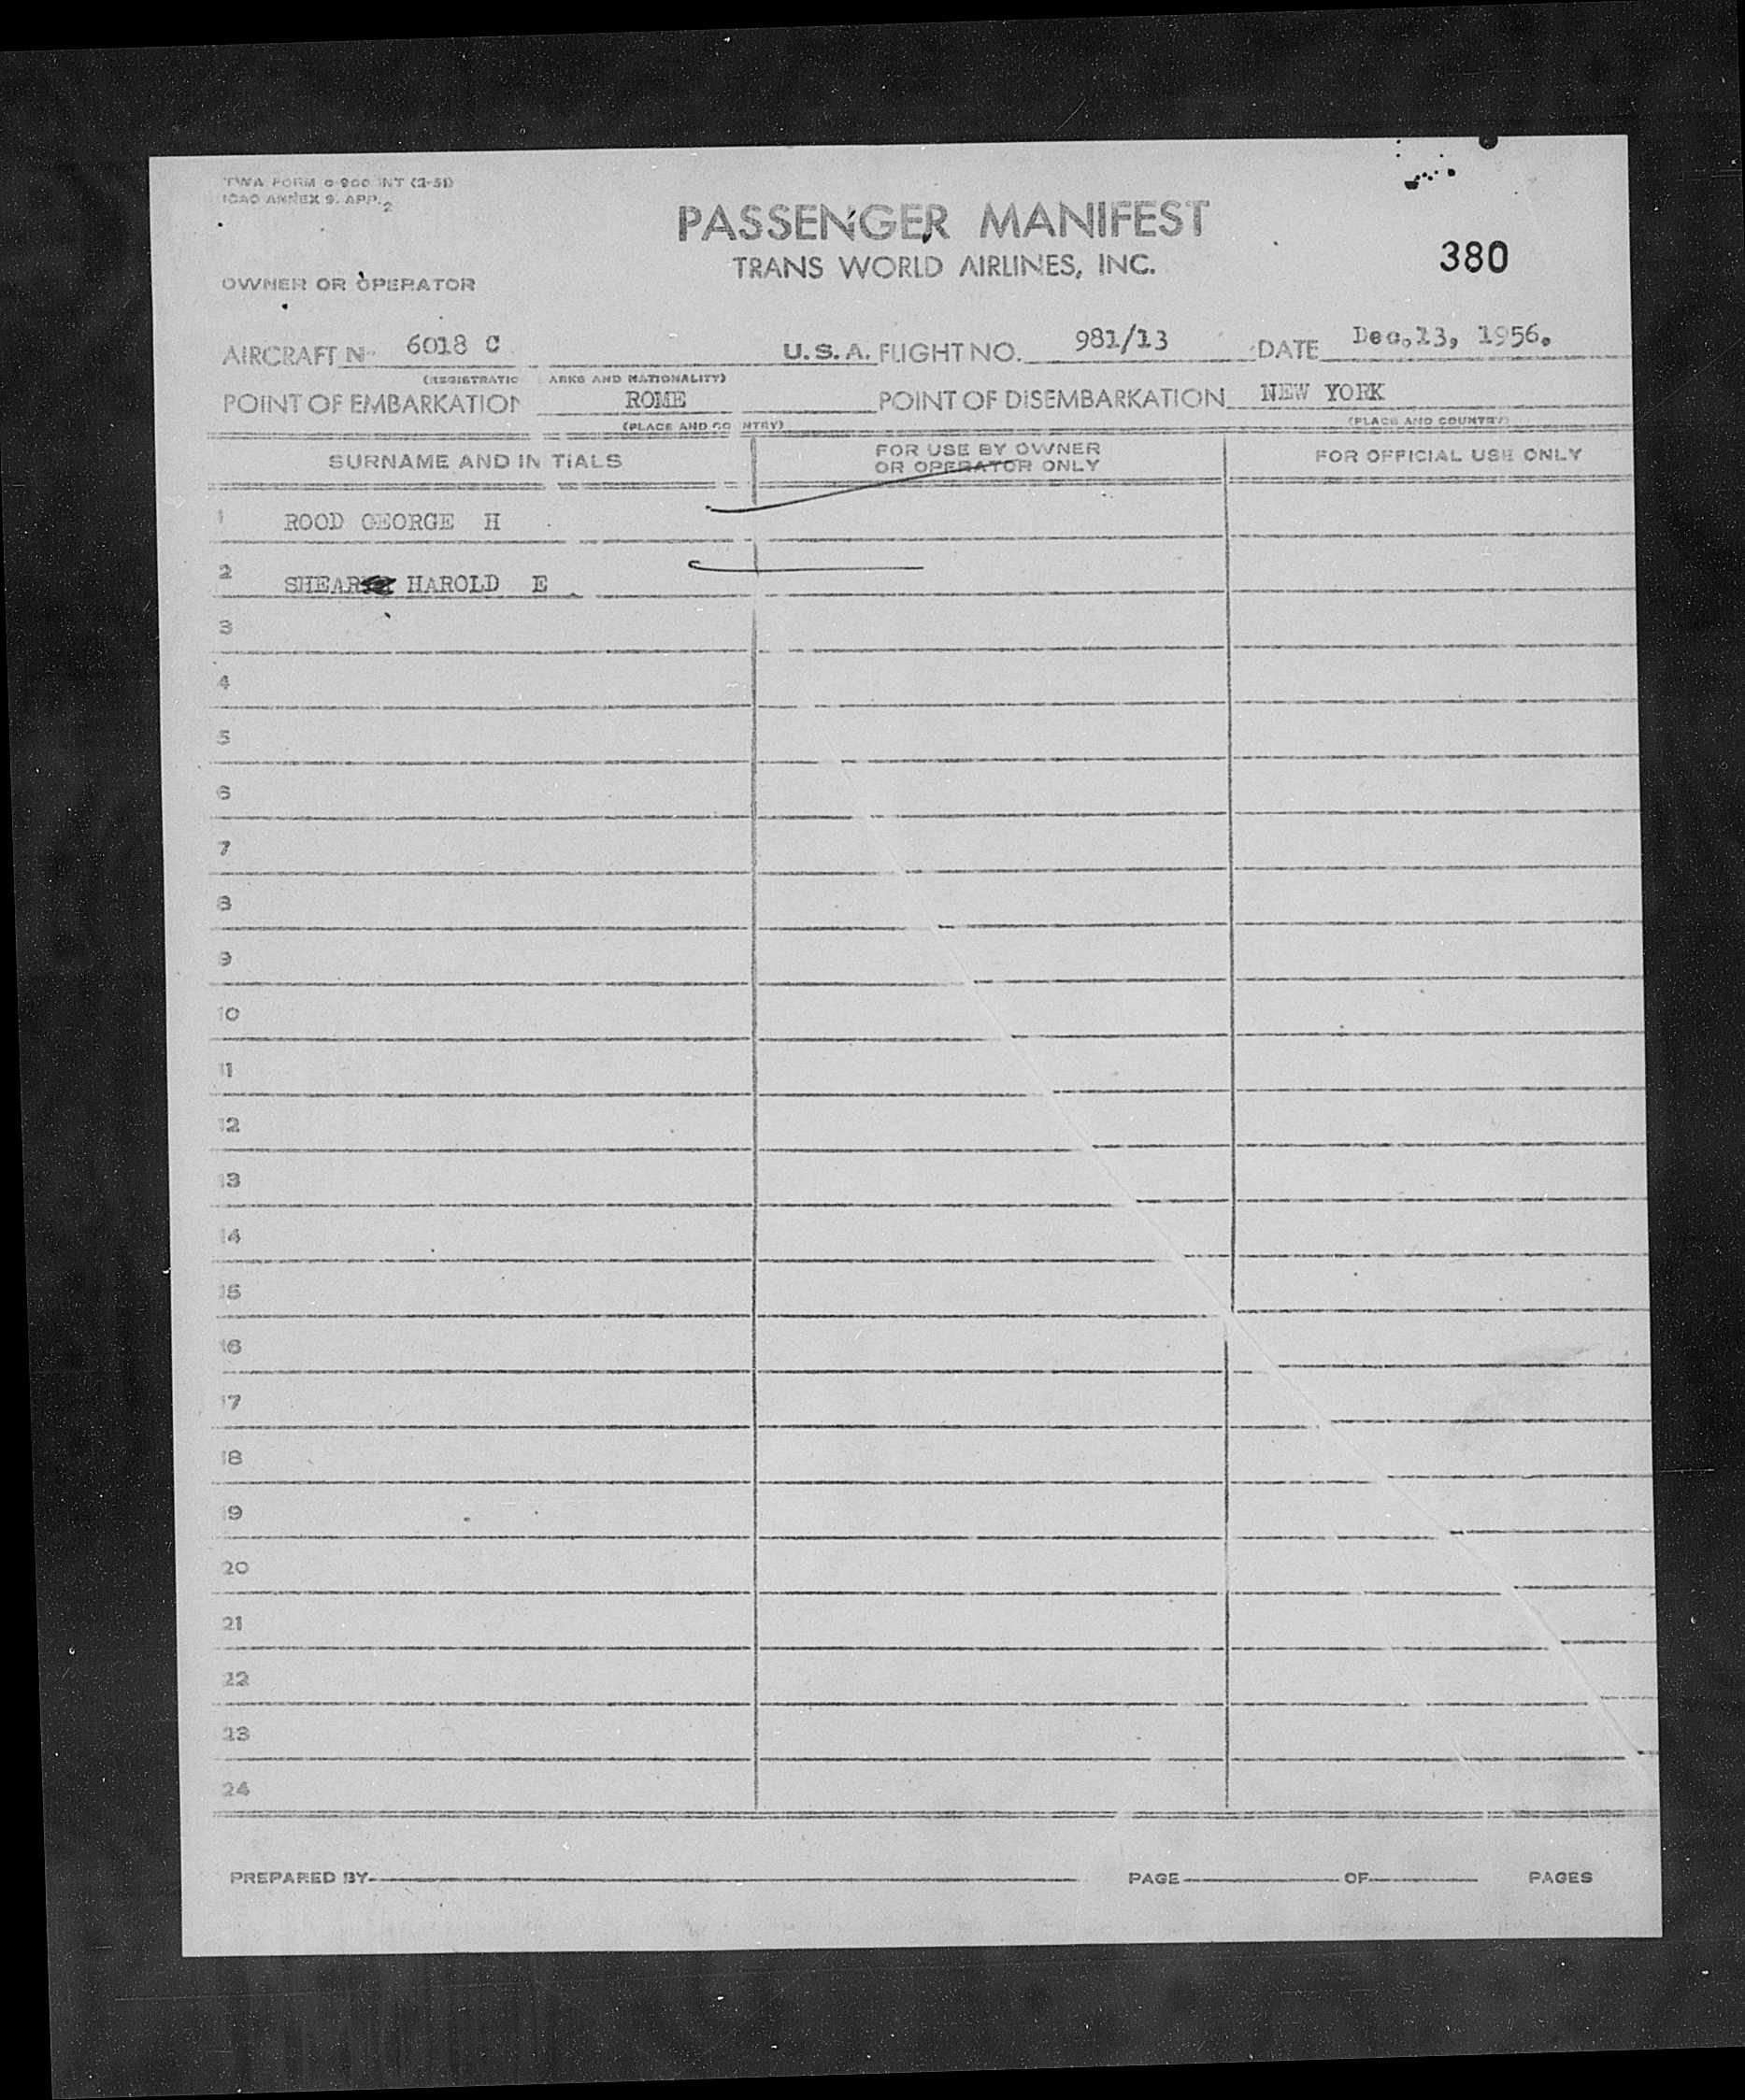 TWA FORM O-900 INT (3-51)
ICAO ANNEX 9. APP. 2
PASSENGER MANIFEST
TRANS WORLD AIRLINES, INC.
380
OWNER OR OPERATOR
AIRCRAFT No 6018 C U.S.A. FLIGHT NO. 981/13 DATE Dec.13, 1956.
(REGISTRATIO ARKS AND NATIONALITY)
POINT OF EMBARKATION ROME POINT OF DISEMBARKATION NEW YORK
(PLACE AND CO NTRY) (PLACE AND COUNTRY)
SURNAME AND IN TIALS FOR USE BY OWNER
OR OPERATOR ONLY FOR OFFICIAL USE ONLY
1 ROOD GEORGE H
2 SHEAR HAROLD E
3
4
5
6
7
8
9
10
11
12
13
14
15
16
17
18
19
20
21
22
23
24
PREPARED BY PAGE OF PAGES